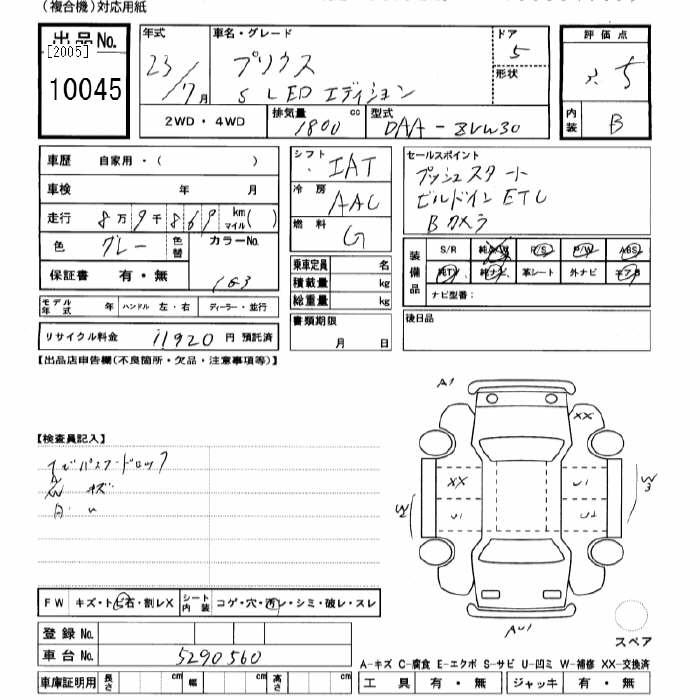 (複合機)対応用紙
出品No.
[2005]
10045
年式 23/7月
車名・グレード プリウス
S LEDエディション
ドア 5
形状
評価点 5
内装 B
2WD・4WD
排気量 1800 cc
型式 DAA-ZVW30
車歴 自家用・( )
車検 年 月
走行 8万9千869 km マイル( )
色 グレー 色替 カラーNo. 1G3
保証書 有・無
モデル年式 年 ハンドル 左・右 ディーラー・並行
リサイクル料金 11920 円 預託済
シフト IAT
冷房 AAC
燃料 G
乗車定員 名
積載量 kg
総重量 kg
書類期限
月 日
セールスポイント
プッシュスタート
ビルドインETC
Bカメラ
装備品
S/R 純AW P/S P/W ABS
純TV 純ナビ 革シート 外ナビ エアB
ナビ型番:
後日品
【出品店申告欄(不良箇所・欠品・注意事項等)】
【検査員記入】
キズ
FW キズ・トビ石・割レX
シート内装 コゲ・穴・汚レ・シミ・破レ・スレ
登録No.
車台No. 5290560
車庫証明用 長さ cm 幅 cm 高さ cm
A1
XX
XX
U1
W3
W2
U1
U2
AU1
スペア
A-キズ C-腐食 E-エクボ S-サビ U-凹ミ W-補修 XX-交換済
工具 有・無 ジャッキ 有・無